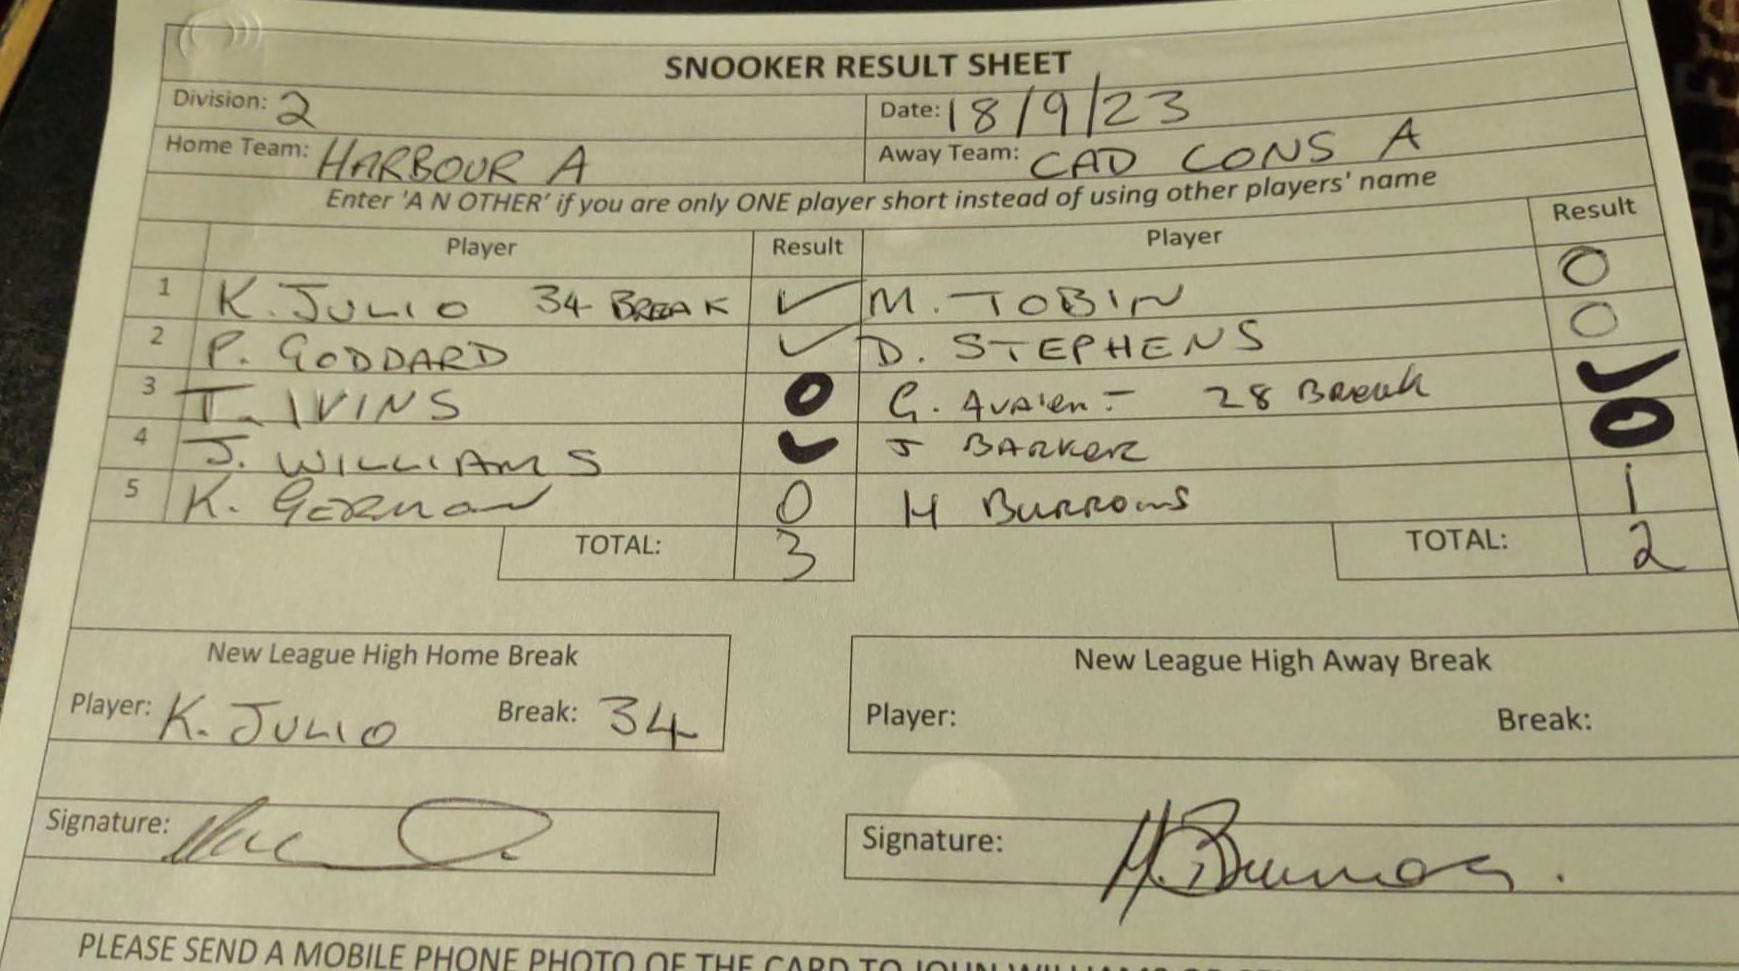 SNOOKER RESULT SHEET
Division: 2 Date: 18/9/23
Home Team: HARBOUR A Away Team: CAD CONS A
Enter 'A N OTHER' if you are only ONE player short instead of using other players' name
Player Result Player Result
1 K. JULIO 34 BREAK ✓ M. TOBIN 0
2 P. GODDARD ✓ D. STEPHENS 0
3 T. IVINS 0 G. 28 Break ✓
4 J. WILLIAMS ✓ J BARKER 0
5 K. GORMAN 0 H BURROWS 1
TOTAL: 3 TOTAL: 2
New League High Home Break New League High Away Break
Player: K. JULIO Break: 34 Player: Break:
Signature: Signature: H. Burrows.
PLEASE SEND A MOBILE PHONE PHOTO OF THE CARD TO JOHN WILLIAMS